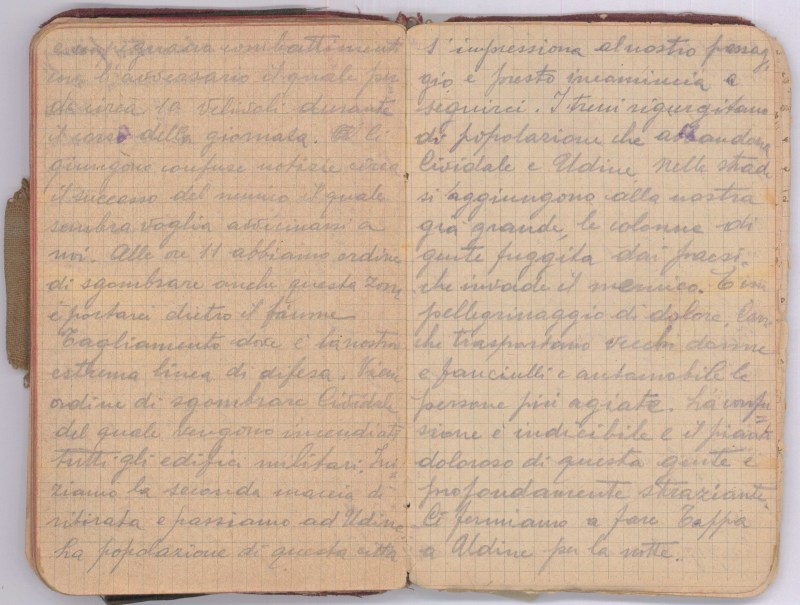 combattimenti
con l'avversario il quale per
de circa 10 velivoli durante
il corso della giornata. Ci
giungono confuse notizie circa
il successo del nemico il quale
sembra voglia avvicinarsi a
noi. Alle ore 11 abbiamo ordine
di sgombrare anche questa zona
e portarci dietro il fiume
Tagliamento dove è la nostra
estrema linea di difesa. Viene
ordine di sgombrare Cividale
del quale vengono incendiati
tutti gli edifici militari. Ini„
ziamo la seconda marcia di
ritirata e passiamo ad Udine
La popolazione di questa città
s'impressiona al nostro passag„
gio e presto incomincia a
seguirci. I treni rigurgitano
di popolazione che abbandona
Cividale e Udine, nelle strade
si aggiungono alla nostra
già grande, le colonne di
gente fuggita dai paesi
che invade il nemico. È un
pellegrinaggio di dolore,
che trasportano vecchi donne
e fanciulli e automobile le
persone più agiate. La confu=
sione è indicibile e il pianto
doloroso di questa gente è
profondamente straziante.
Ci fermiamo a fare Tappa
a Udine per la notte.